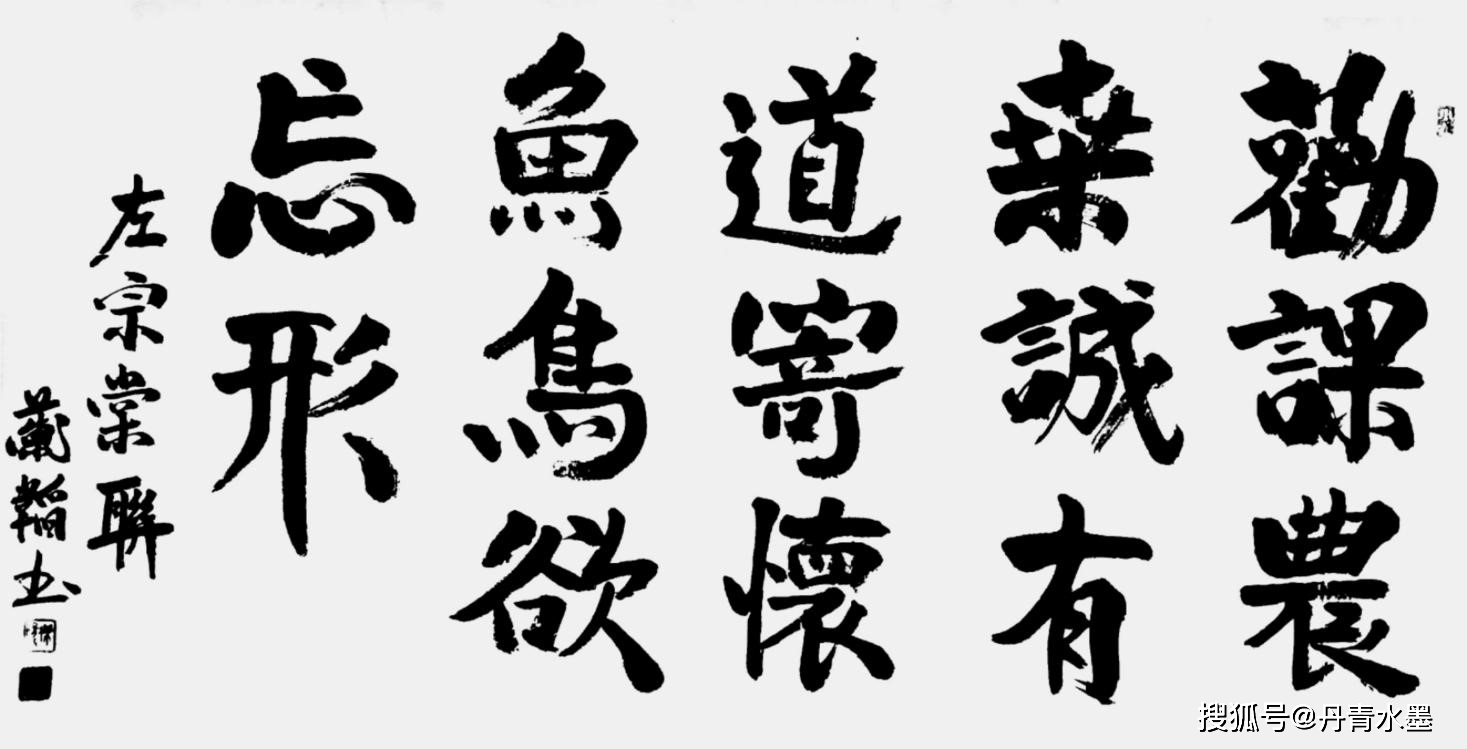 勸課農
桒誠有
道寄懷
魚鳥欲
忘形
左宗棠聯
韜书
搜狐号@丹青水墨